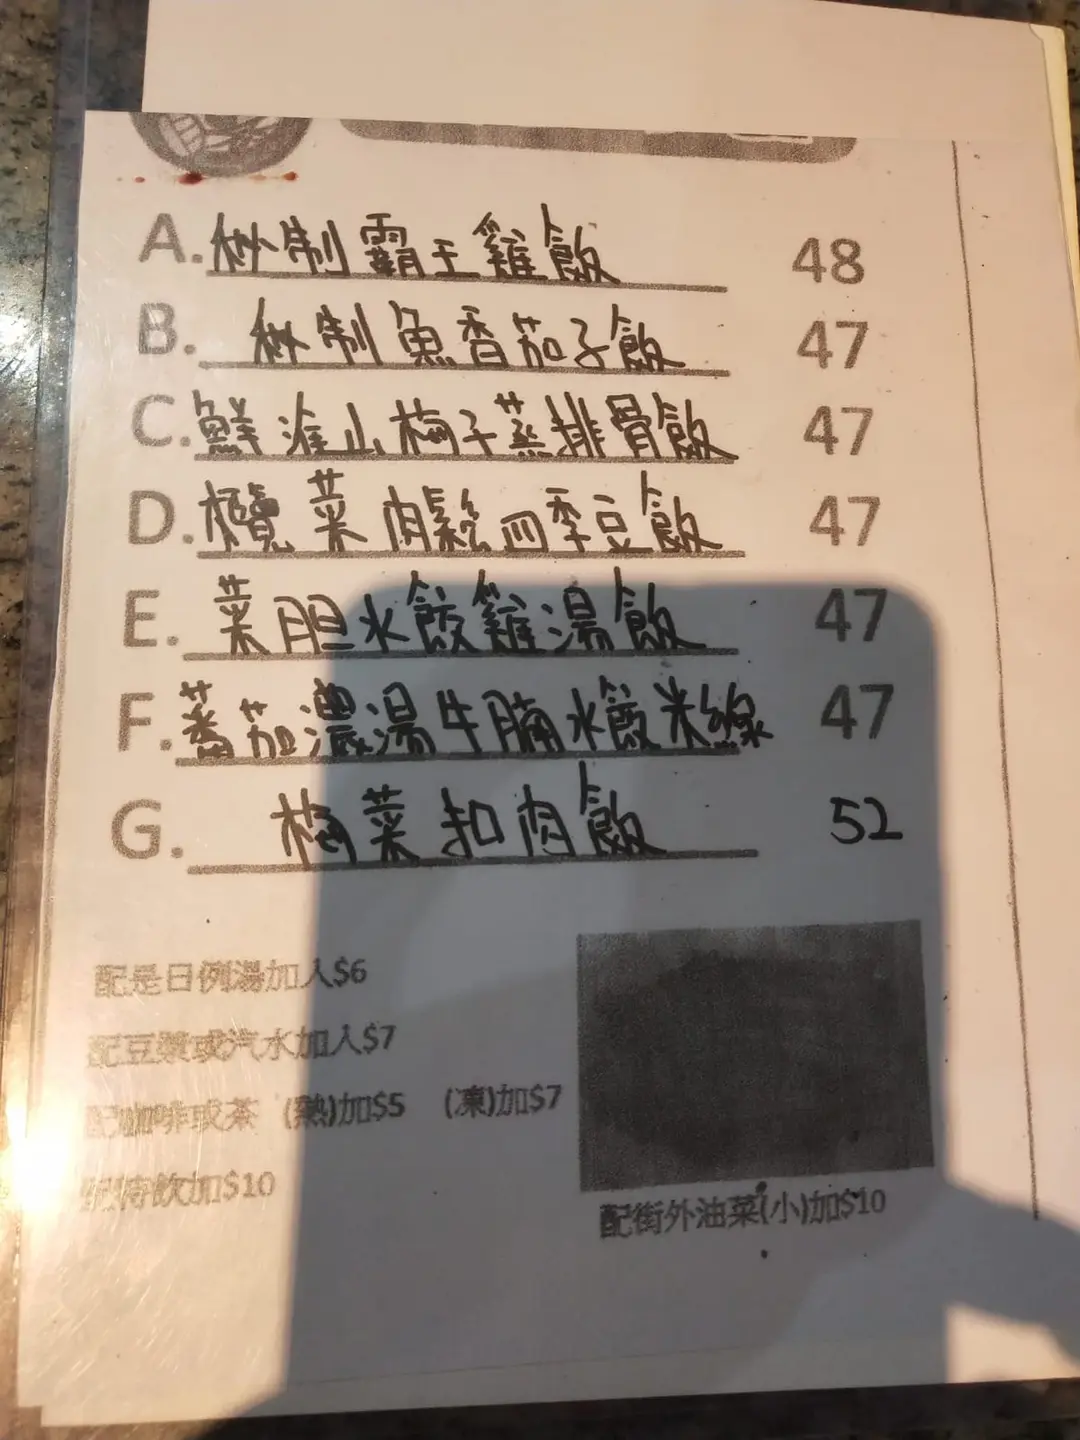 A. 秘制霸王雞飯 48
B. 秘制魚香茄子飯 47
C. 鮮淮山梅子蒸排骨飯 47
D. 欖菜肉鬆四季豆飯 47
E. 菜胆水餃雞湯飯 47
F. 蕃茄濃湯牛腩水餃米線 47
G. 梅菜扣肉飯 52
配是日例湯加入$6
配豆漿或汽水加入$7
配咖啡或茶 (熱)加$5 (凍)加$7
配特飲加$10
配街外油菜(小)加$10